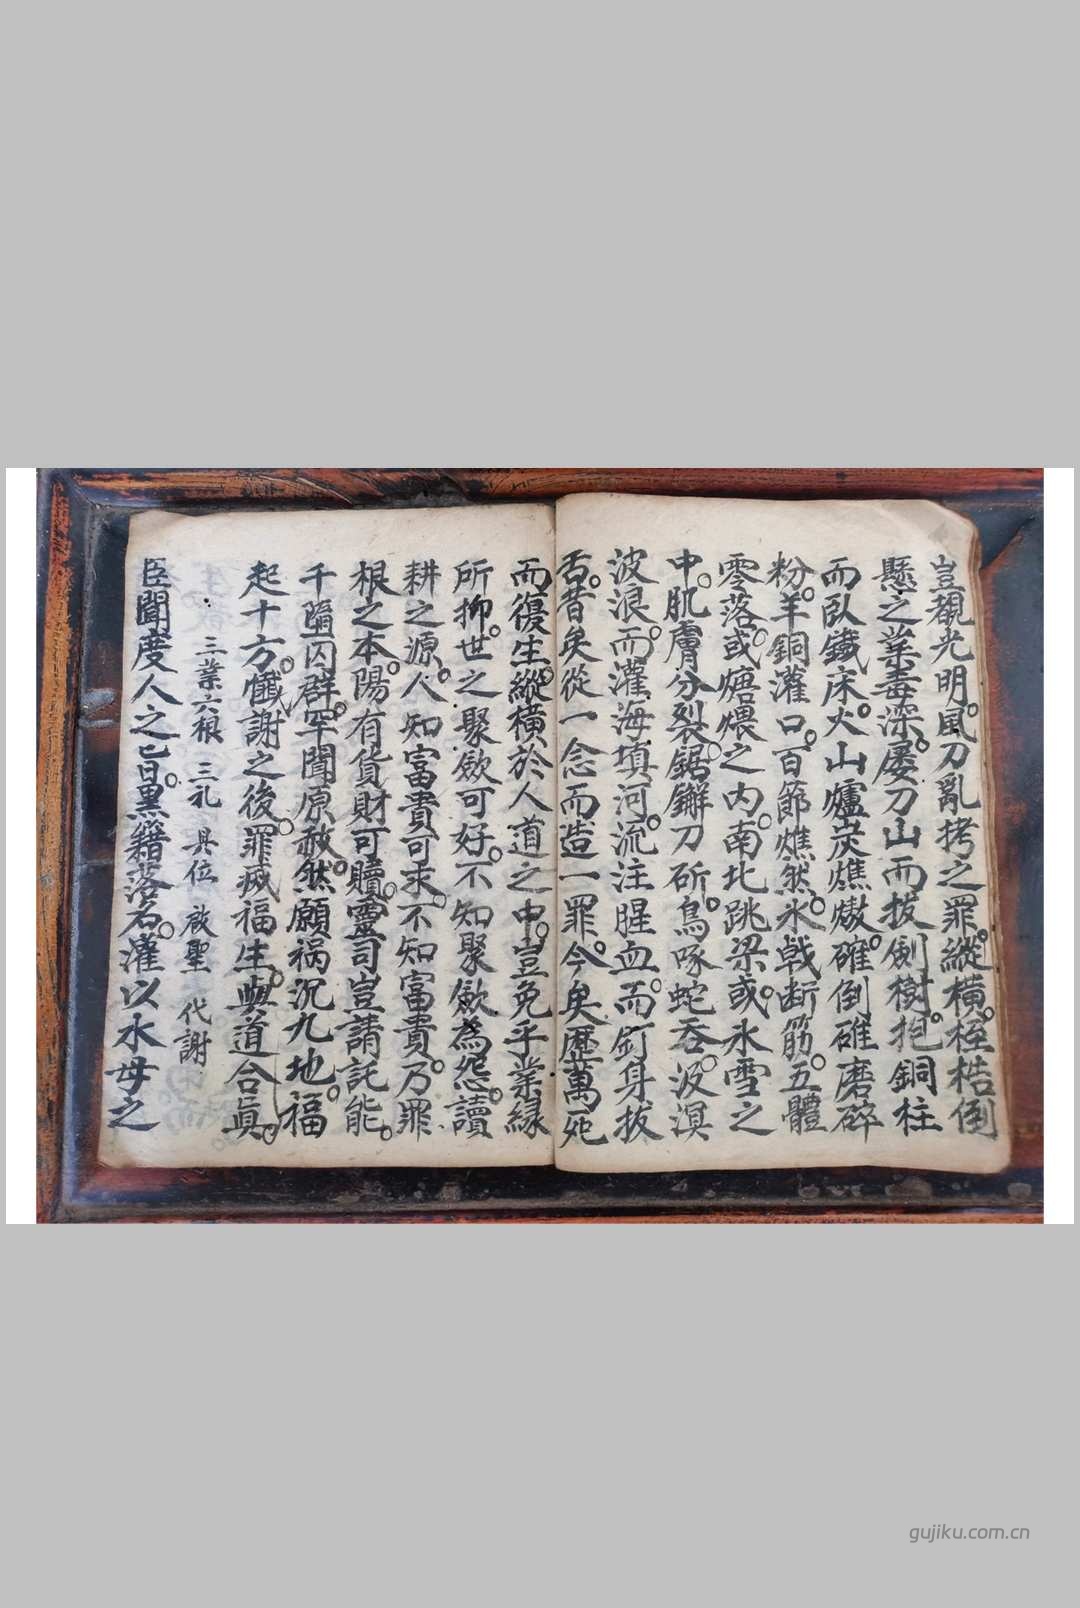 豈覩光明。風刀亂拷之罪。縱橫。桎梏倒
懸之業毒深。屡刀山而拔劍樹。抱銅柱
而臥鐵床。火山爐炭燋熬。碓倒磓磨碎
粉。羊銅灌口。百節燋然。氷戟断筋。五體
零落。或煻煨之内。南北跳梁。或氷雪之
中。肌膚分裂。鋸解刀斫。鳥啄蛇吞。汲溟
波浪。而灌海填河。流注腥血。而釘身拔
舌。昔矣從一念而造一罪。今矣歷萬死
而復生。縱橫於人道之中。豈免乎業緣
所抑。世之聚歛可好。不知聚歛為怨。讀
耕之源。人知富貴可求。不知富貴。乃罪
根之本。陽有貨財可贖。靈司豈請託能。
千隔囚群。罕聞原赦。然願祸沉九地。福
起十方。懺謝之後。罪滅福生。與道合真。
三業六根 三礼 具位 啟聖 代謝
臣聞度人之旨。黒籍落名。灌以水母之
gujiku.com.cn